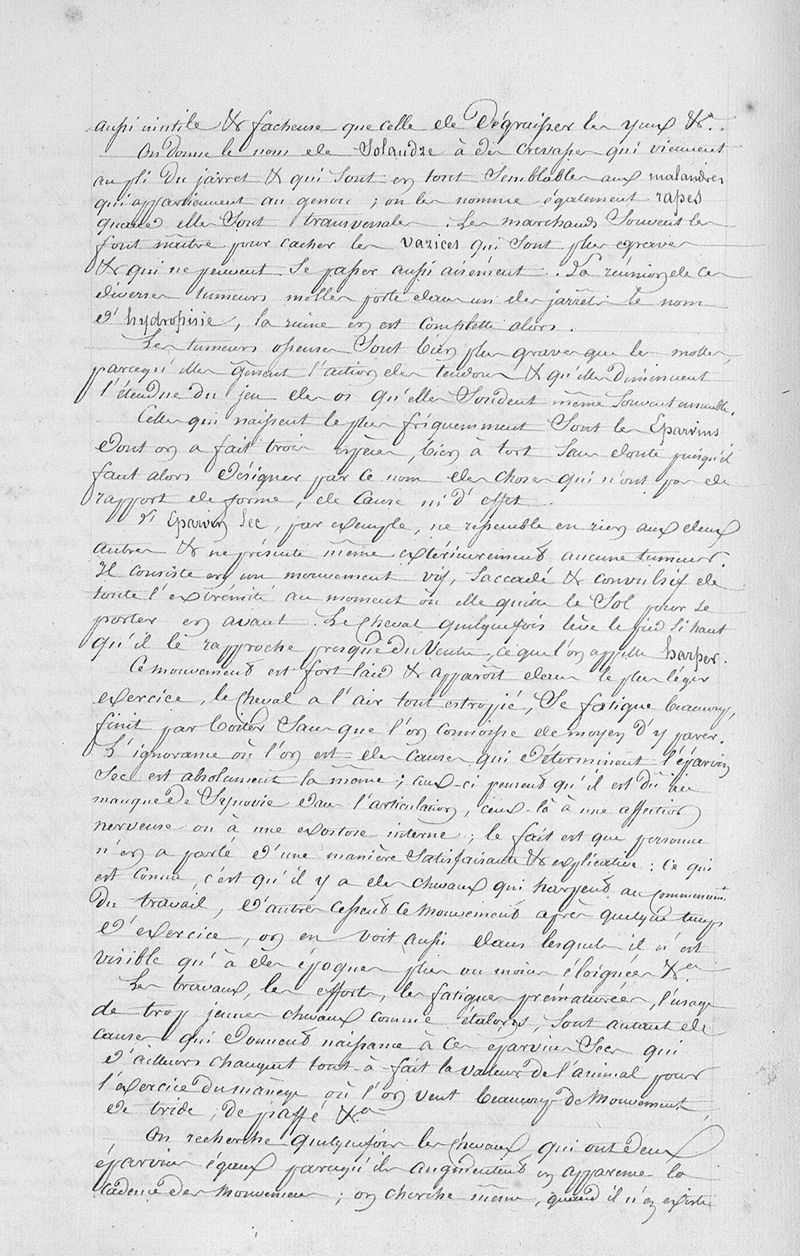 aussi inutile & facheuse que celle de Dégraisser les yeux &a.
On Donne le nom de Solandre à des Crevasses qui viennent
au pli Du jarret & qui Sont en tout Semblables aux malandres
qui appartiennent au genou ; on les nomme également rapes
quand elles Sont transversales. Les marchands Souvent les
font naitre pour cacher les varices qui Sont plus graves
& qui ne peuvent Se passer aussi aisément. La réunion de ces
diverses tumeurs molles porte dans un des jarrets le nom
d'hydropisie, la ruine en est Complette alors.
Les tumeurs osseuses Sont bien plus graves que les molles
parcequ'elles gênent l'action des tendons & qu'elles Diminuent
l'étendue Du jeu des os qu'elles Soudent même Souvent ensemble.
Celles qui naissent le plus fréquemment Sont les Eparvins
Dont on a fait trois espèces, bien à tort Sans doute puisqu'il
faut alors Désigner par ce nom des choses qui n'ont pas de
rapport de forme, de Cause ni d'effet.
L'Eparvin Sec, par exemple, ne ressemble en rien aux deux
autres & ne présente même extérieurement aucune tumeur.
Il consiste en un mouvement vif, Saccadé & convulsif de
toute l'extrémité au moment où elle quitte le Sol pour se
porter en avant. Le Cheval quelquefois lève le pied Si haut
qu'il le rapproche presque Du Ventre, ce que l'on appelle harper.
Ce mouvement est fort laid & apparoît dans le plus léger
exercice, le Cheval a l'air tout estropié, Se fatigue beaucoup,
finit par boiter Sans que l'on connoisse de moyen d'y parer.
L'ignorance où l'on est des causes qui Déterminent l'éparvin
Sec est absolument la même ; ceux-ci pensent qu'il est Dû au
manque De Synovie Dans l'articulation, ceux-là à une affection
nerveuse ou à une exostose interne ; le fait est que personne
n'en a parlé D'une manière Satisfaisante & explicative : Ce qui
est Connu, c'est qu'il y a des chevaux qui harpent au Commencemt
Du travail, D'autres cessent ce mouvement après quelque temps
D'exercice, on en voit aussi dans lesquels il n'est
visible qu'à des époques plus ou moins éloignées &a
Les travaux, les efforts, les fatigues prématurées, l'usage
de trop jeunes chevaux comme étalons, Sont autant de
causes qui Donnent naissance à ces éparvins Secs qui
D'ailleurs changent tout-à-fait la valeur de l'animal pour
l'exercice Du manège où l'on veut beaucoup De Mouvement,
De tride, de piaffé &a
On recherche quelquefois les Chevaux qui ont Deux
éparvins égaux parcequ'ils augmentent en apparence la
Cadence Des Mouvemens ; on cherche même, quand il n'en existe